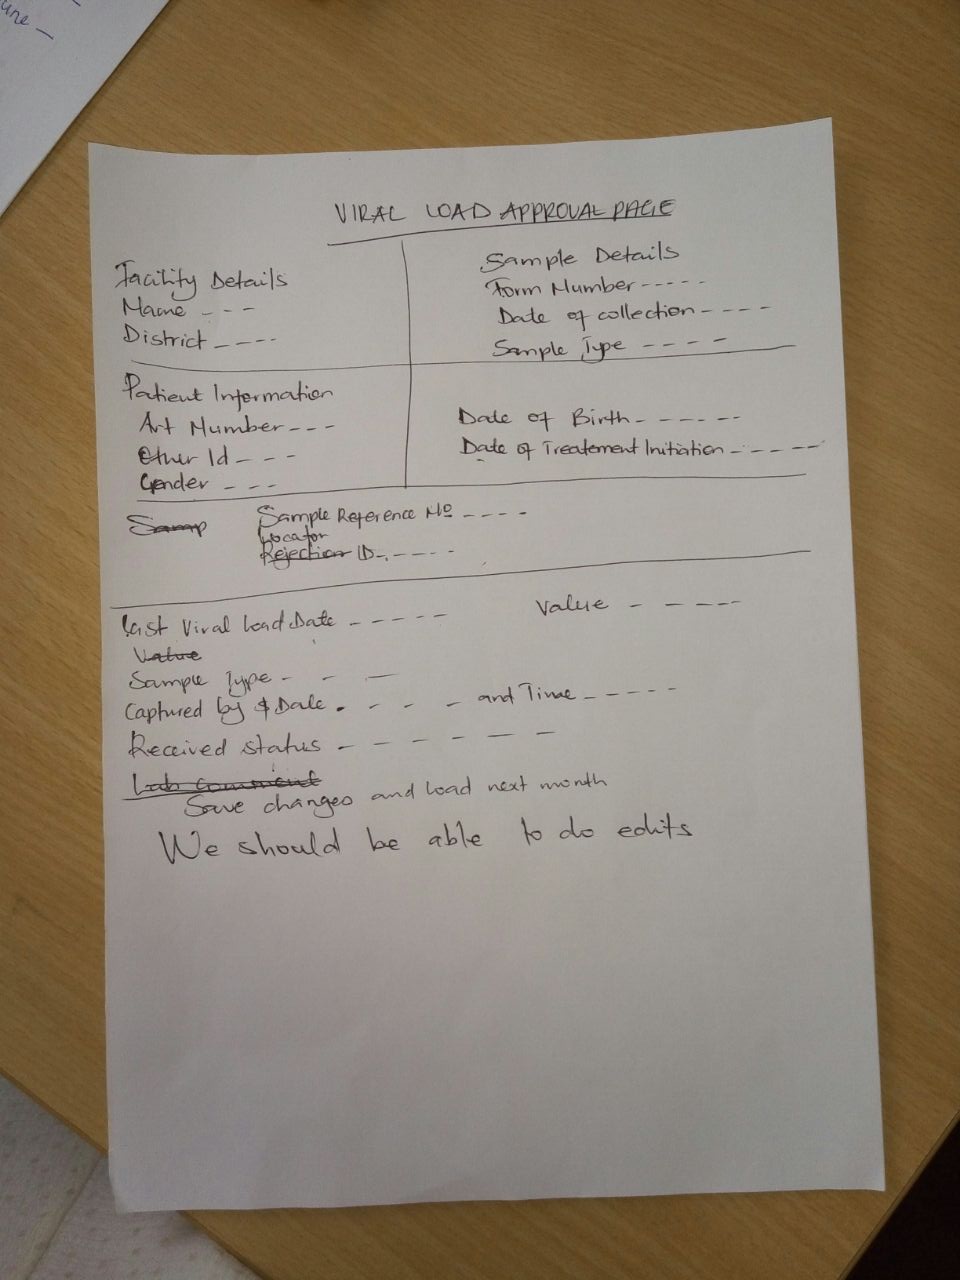 une –
VIRAL LOAD APPROVAL PAGE
Facility Details
Name - - -
District - - - -
Sample Details
Form Number - - - - -
Date of collection - - - -
Sample Type - - - -
Patient Information
Art Number - - -
Other Id - - -
Gender - - -
Date of Birth - - - - - -
Date of Treatement Initiation - - - - - -
Samp
Sample Reference No - - - -
Locator
Rejection ID - - - - -
Last Viral Load Date - - - - -
Value - - - - -
Value
Sample Type - - —
Captured by & Date - - - - and Time - - - - -
Received status - - - - - -
Lab comment
Save changes and load next month
We should be able to do edits